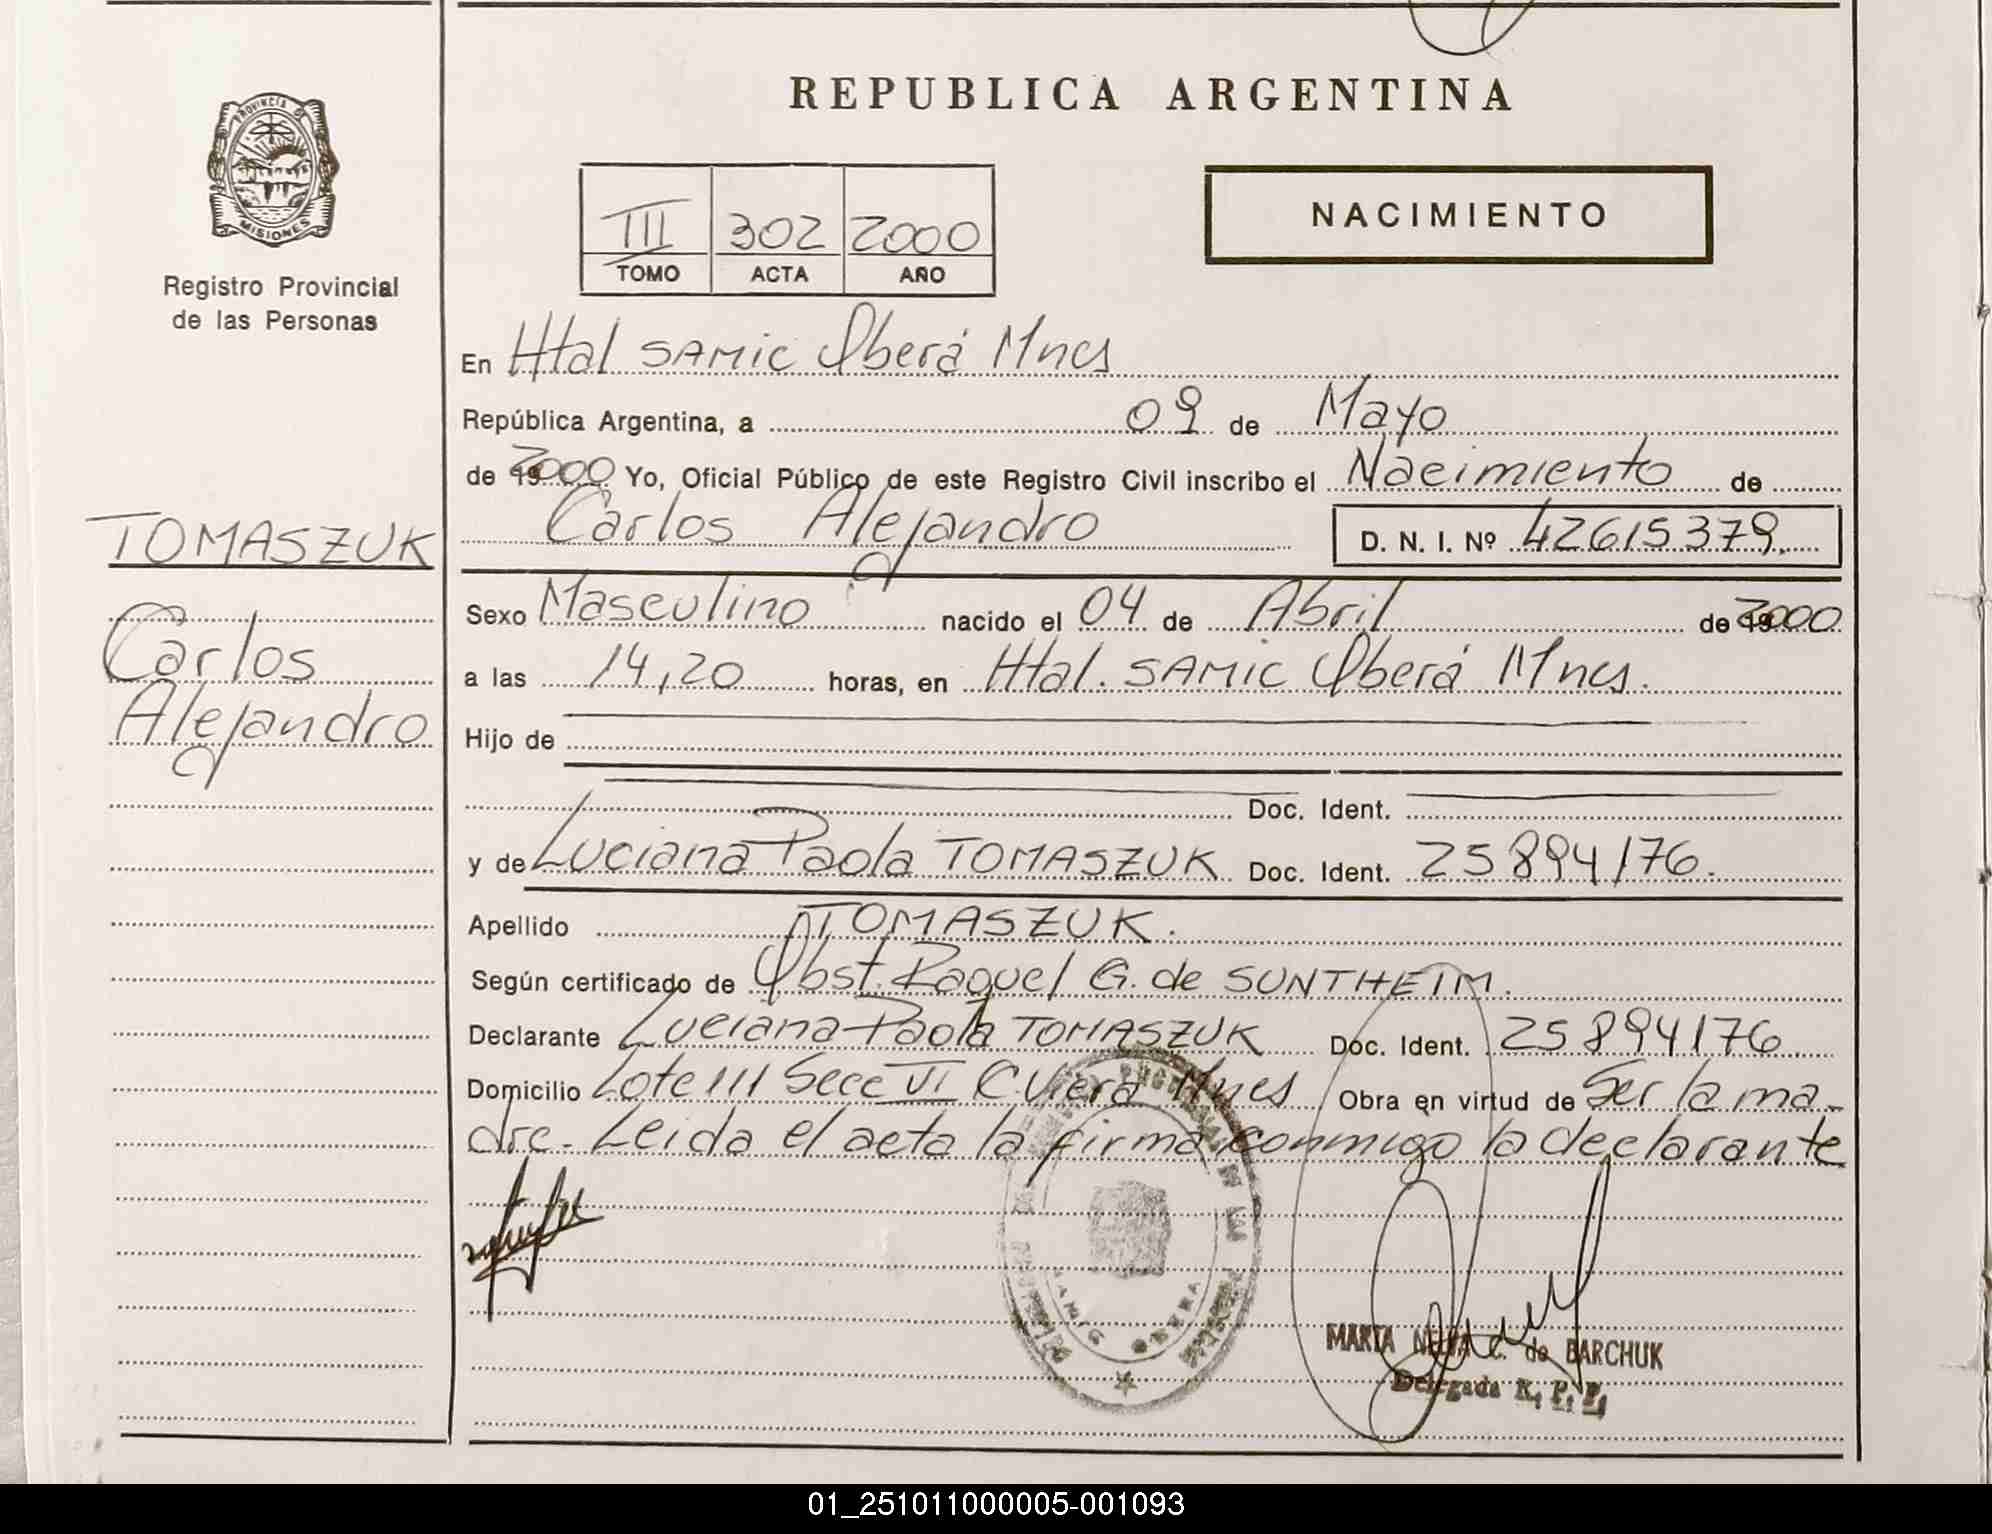 REPUBLICA ARGENTINA
PROVINCIA DE MISIONES
Registro Provincial
de las Personas
III 302 2000
TOMO ACTA AÑO
NACIMIENTO
En Htal SAMIC Oberá Mnes
República Argentina, a 09 de Mayo
de 2000 Yo, Oficial Público de este Registro Civil inscribo el Nacimiento de
Carlos Alejandro D. N. I. Nº 42615379.
TOMASZUK
Carlos
Alejandro
Sexo Masculino nacido el 04 de Abril de 2000
a las 14,20 horas, en Htal. SAMIC Oberá Mnes.
Hijo de
Doc. Ident.
y de Luciana Paola TOMASZUK Doc. Ident. 25894176.
Apellido TOMASZUK.
Según certificado de Obst. Raquel G. de SUNTHEIM.
Declarante Luciana Paola TOMASZUK Doc. Ident. 25894176
Domicilio Lote 111 Secc VI C. Viera Mnes Obra en virtud de Ser la ma-
dre. Leida el acta la firma conmigo la declarante
SAMIC OBERA
MARTA C. de BARCHUK
Delegada R. P. P.
01_251011000005-001093